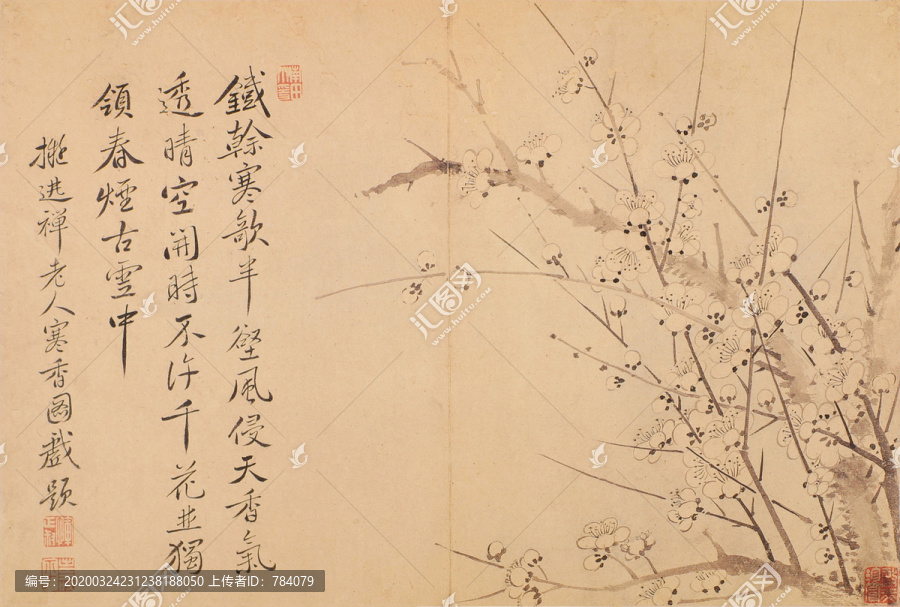 鐵幹寒歌半壁風侵天香氣
透晴空開時不許千花並獨
領春煙古雪中
擬逃禪老人寒香圖戲題
汇图网
www.huitu.com
编号：20200324231238188050 上传者ID：784079